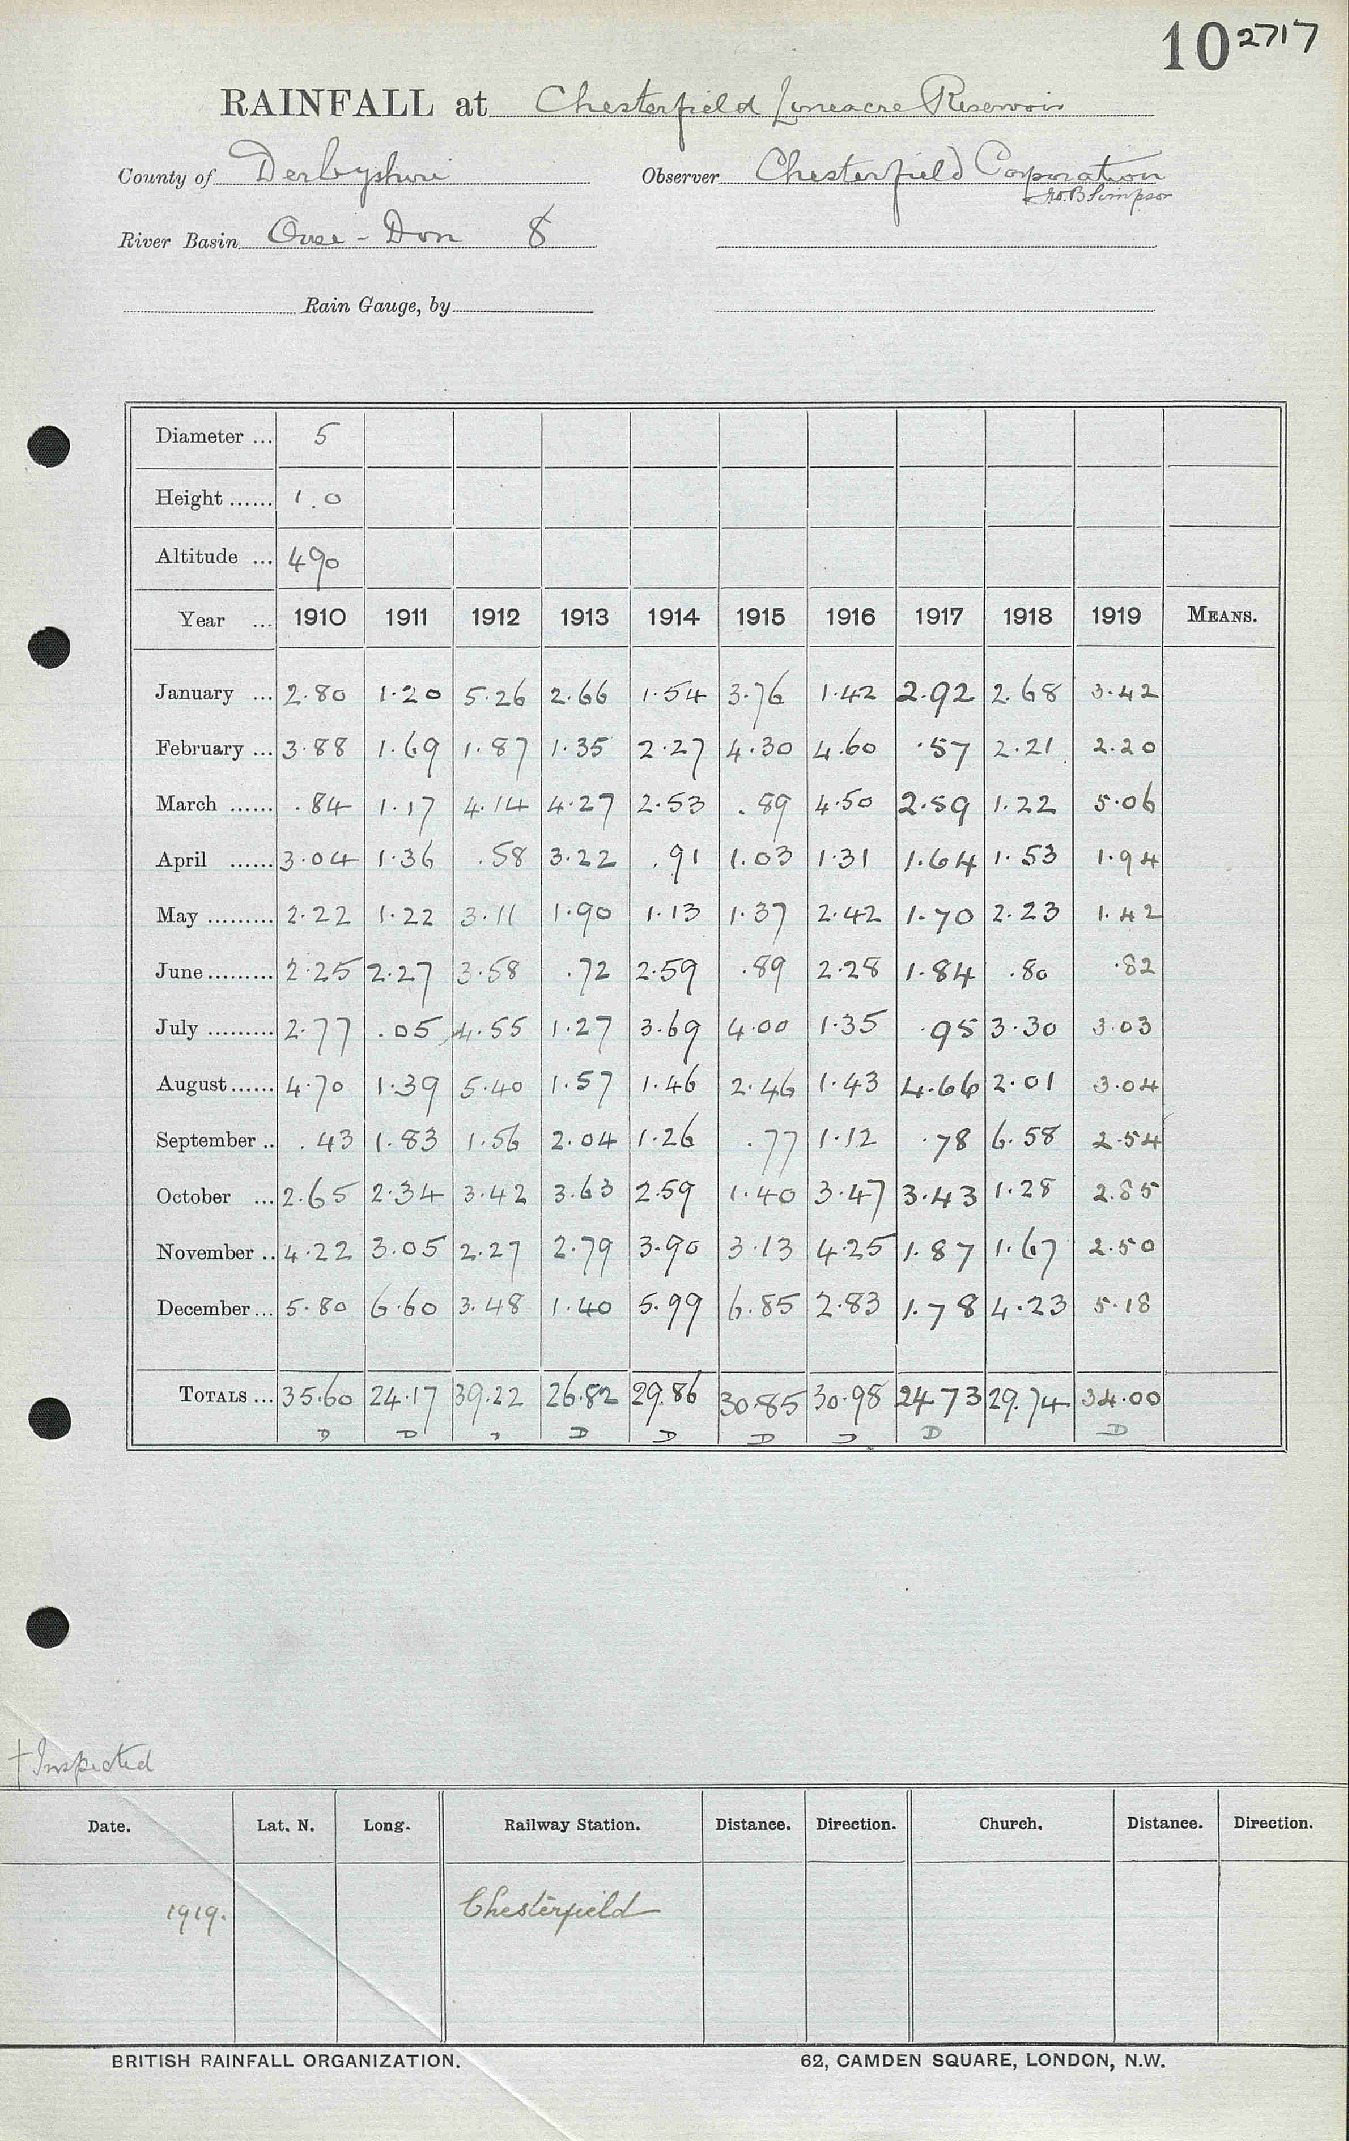 10 2717
RAINFALL at Chesterfield Linacre Reservoir
County of Derbyshire Observer Chesterfield Corporation
River Basin Ouse - Don 8
Rain Gauge, by
Diameter ... 5
Height ...... 1.0
Altitude ... 490
Year ... 1910 1911 1912 1913 1914 1915 1916 1917 1918 1919 MEANS.
January ... 2.80 1.20 5.26 2.66 1.54 3.76 1.42 2.92 2.68 3.42
February ... 3.88 1.69 1.87 1.35 2.27 4.30 4.60 .57 2.21 2.20
March ...... .84 1.17 4.14 4.27 2.53 .89 4.50 2.59 1.22 5.06
April ...... 3.04 1.36 .58 3.22 .91 1.03 1.31 1.64 1.53 1.94
May ......... 2.22 1.22 3.11 1.90 1.13 1.37 2.42 1.70 2.23 1.42
June ......... 2.25 2.27 3.58 .72 2.59 .89 2.28 1.84 .80 .82
July ......... 2.77 .05 4.55 1.27 3.69 4.00 1.35 .95 3.30 3.03
August ...... 4.70 1.39 5.40 1.57 1.46 2.46 1.43 4.66 2.01 3.04
September .. .43 1.83 1.56 2.04 1.26 .77 1.12 .78 6.58 2.54
October ... 2.65 2.34 3.42 3.63 2.59 1.40 3.47 3.43 1.28 2.85
November .. 4.22 3.05 2.27 2.79 3.90 3.13 4.25 1.87 1.67 2.50
December ... 5.80 6.60 3.48 1.40 5.99 6.85 2.83 1.78 4.23 5.18
TOTALS ... 35.60 24.17 39.22 26.82 29.86 30.85 30.98 24.73 29.74 34.00
D D D D D D D D
† Inspected
Date. Lat. N. Long. Railway Station. Distance. Direction. Church. Distance. Direction.
1919. Chesterfield
BRITISH RAINFALL ORGANIZATION. 62, CAMDEN SQUARE, LONDON, N.W.